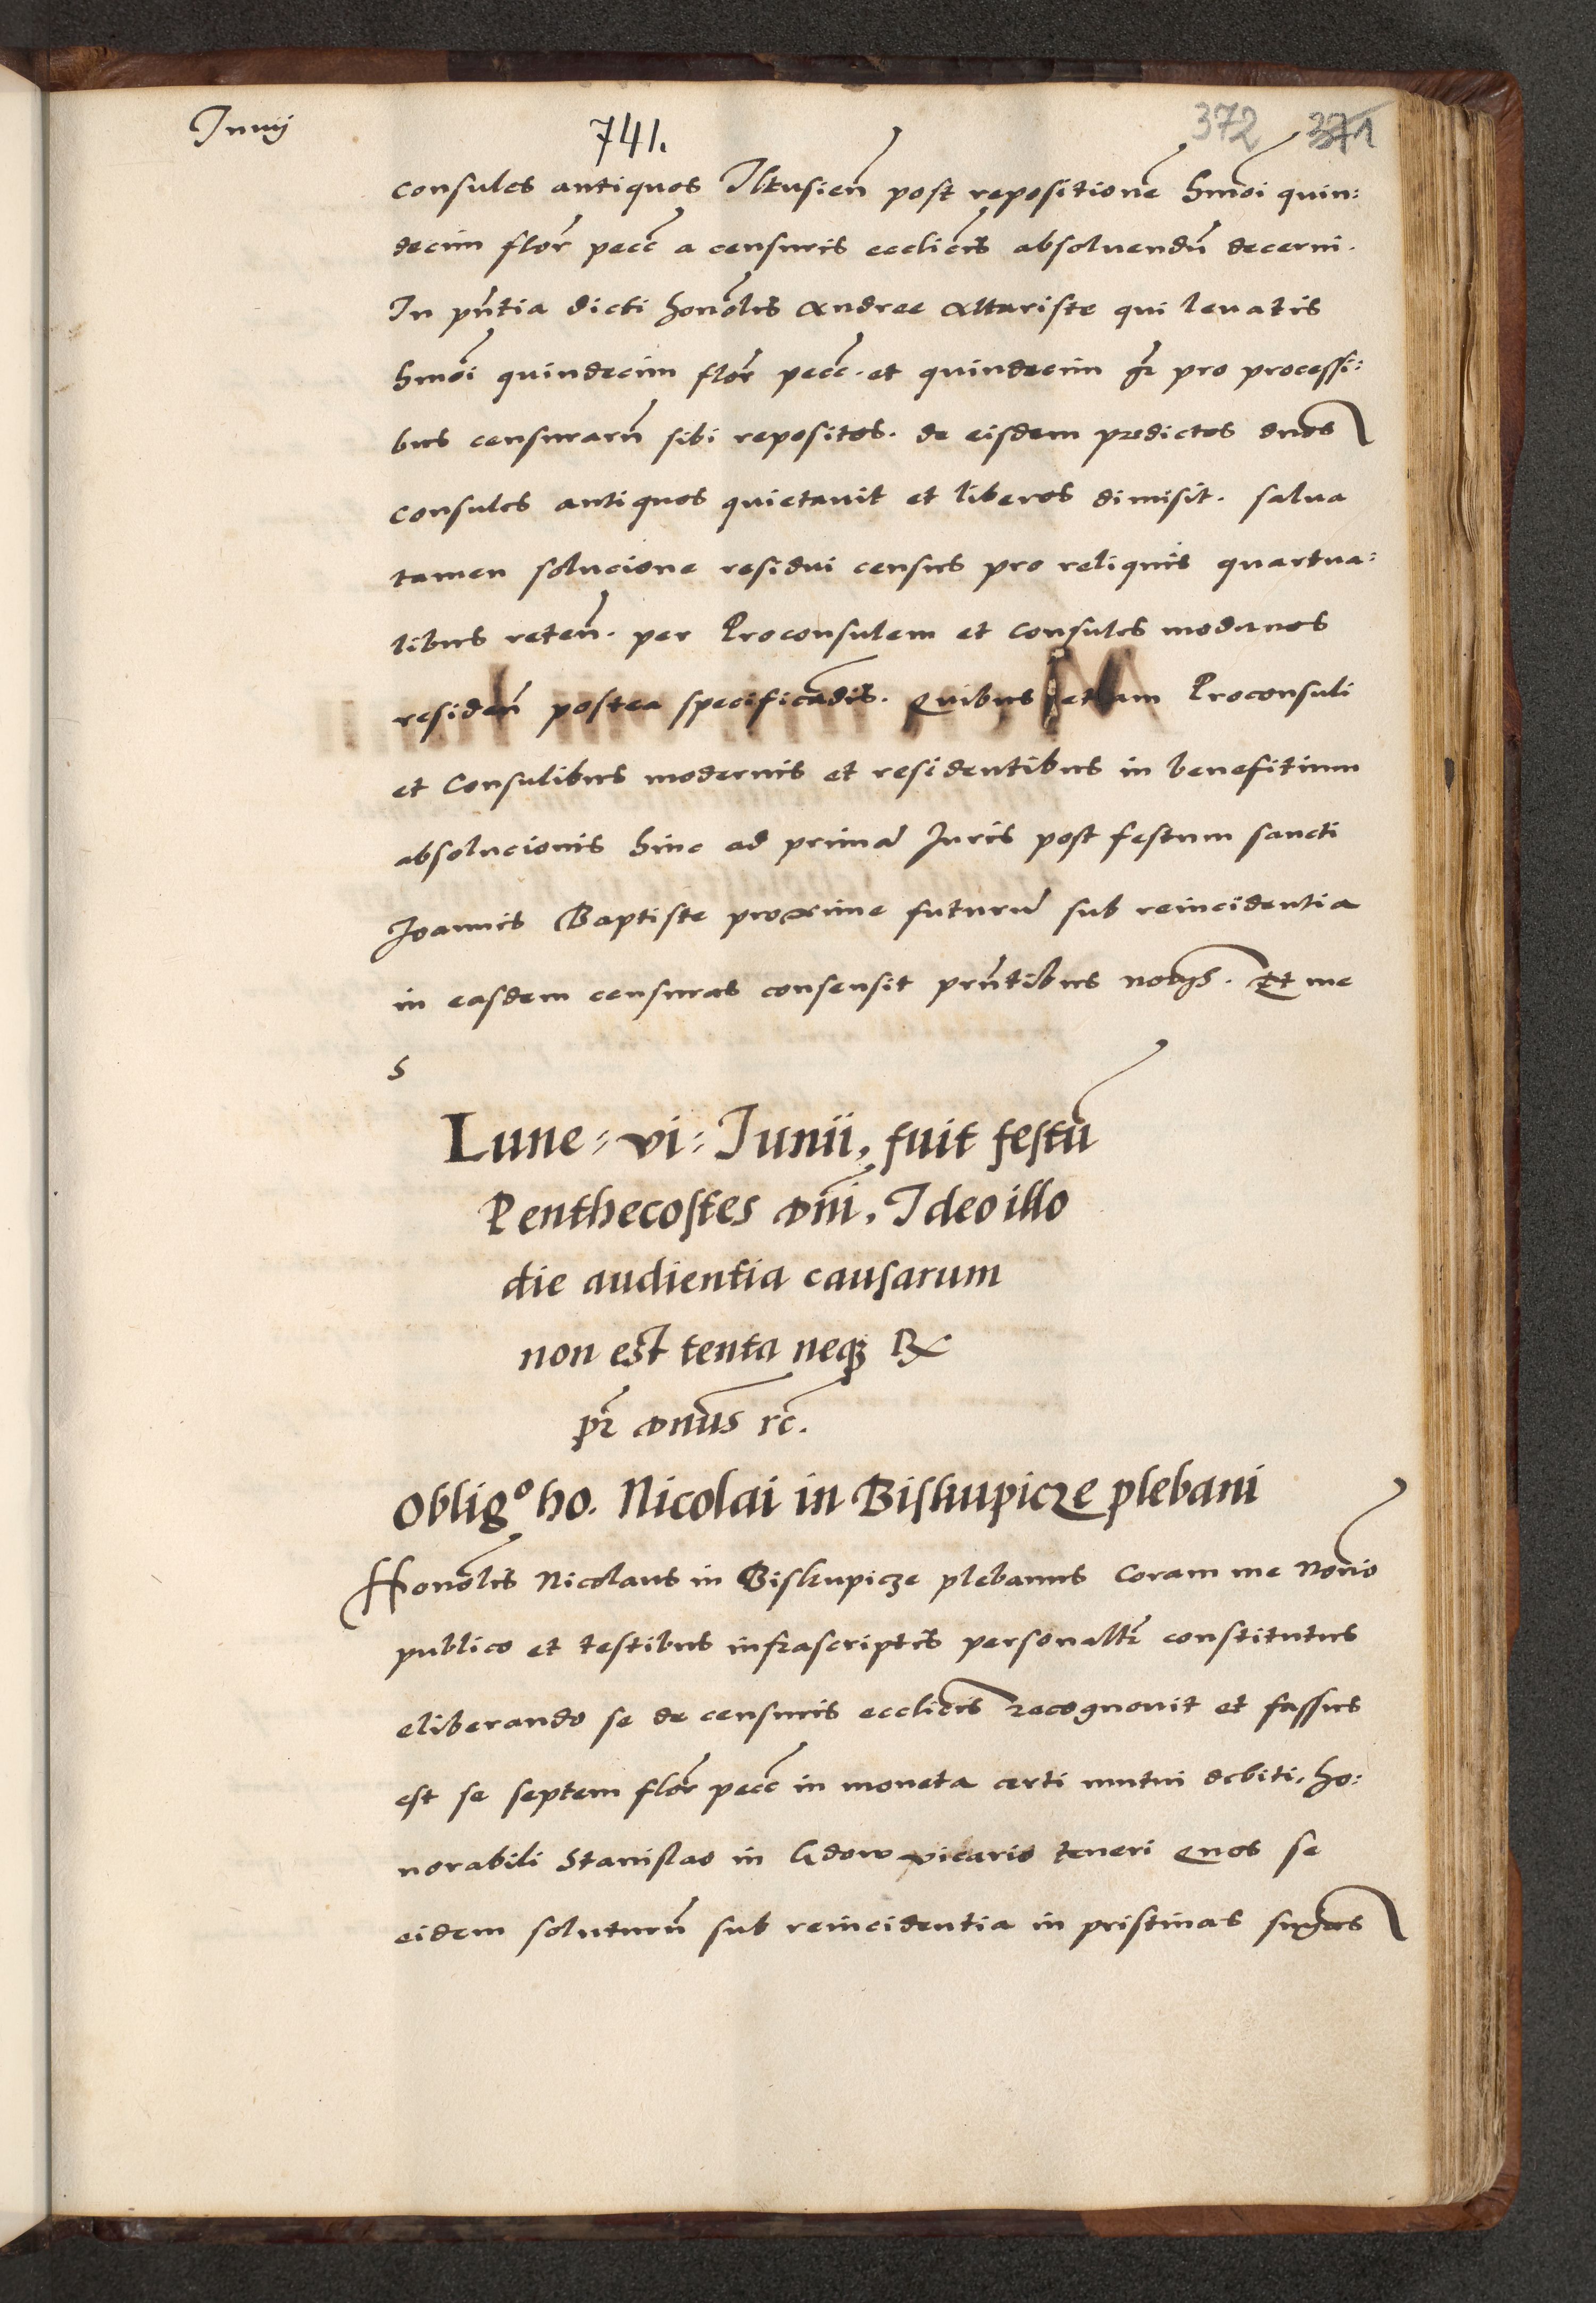 Junij
741.
372 371
consules antiquos Ilkusien̄ post repositionē hmōi quin:
decim flor̄ pecc̄ a censuris eccliēis absoluendū decerni.
In pn̄tia dicti honōlis Andree Altariste qui leuatis
hmōi quindecim flor̄ pecc̄. et quindecim gr̄ pro processi:
bus censurarū sibi repositos. de eisdem predictos dnos
consules antiquos quietauit et liberos dimisit. salua
tamen solucione residui census pro reliquis quartua:
libus reten̄. per Proconsulem et consules modernos
residen̄ postea specificādis. Quibus etiam Proconsuli
et Consulibus modernis et residentibus in benefitium
absolucionis hinc ad primā Juris post festum sancti
Joannis Baptiste proxime futurā sub reincidentia
in easdem censuras consensit prn̄tibus Et me
s
Lune : vi : Junii, fuit festū
Penthecostes dn̄i, Ideo illo
die audientia causarum
non est tenta neqꝫ R
pr̄ dnūs rc̄.
Obligº ho. Nicolai in Biskupicze plebani
Honōlis Nicolaus in Biskupicze plebanus Coram me Norio
publico et testibus infrascriptis personaltr̄ constitutus
eliberando se de censuris eccliēis recognouit et fassus
est se septem flor̄ pecc̄ in moneta certi mutui debiti, ho:
norabili Stanislao in Gdow vicario teneri quos se
eidem soluturū sub reincidentia in pristinas